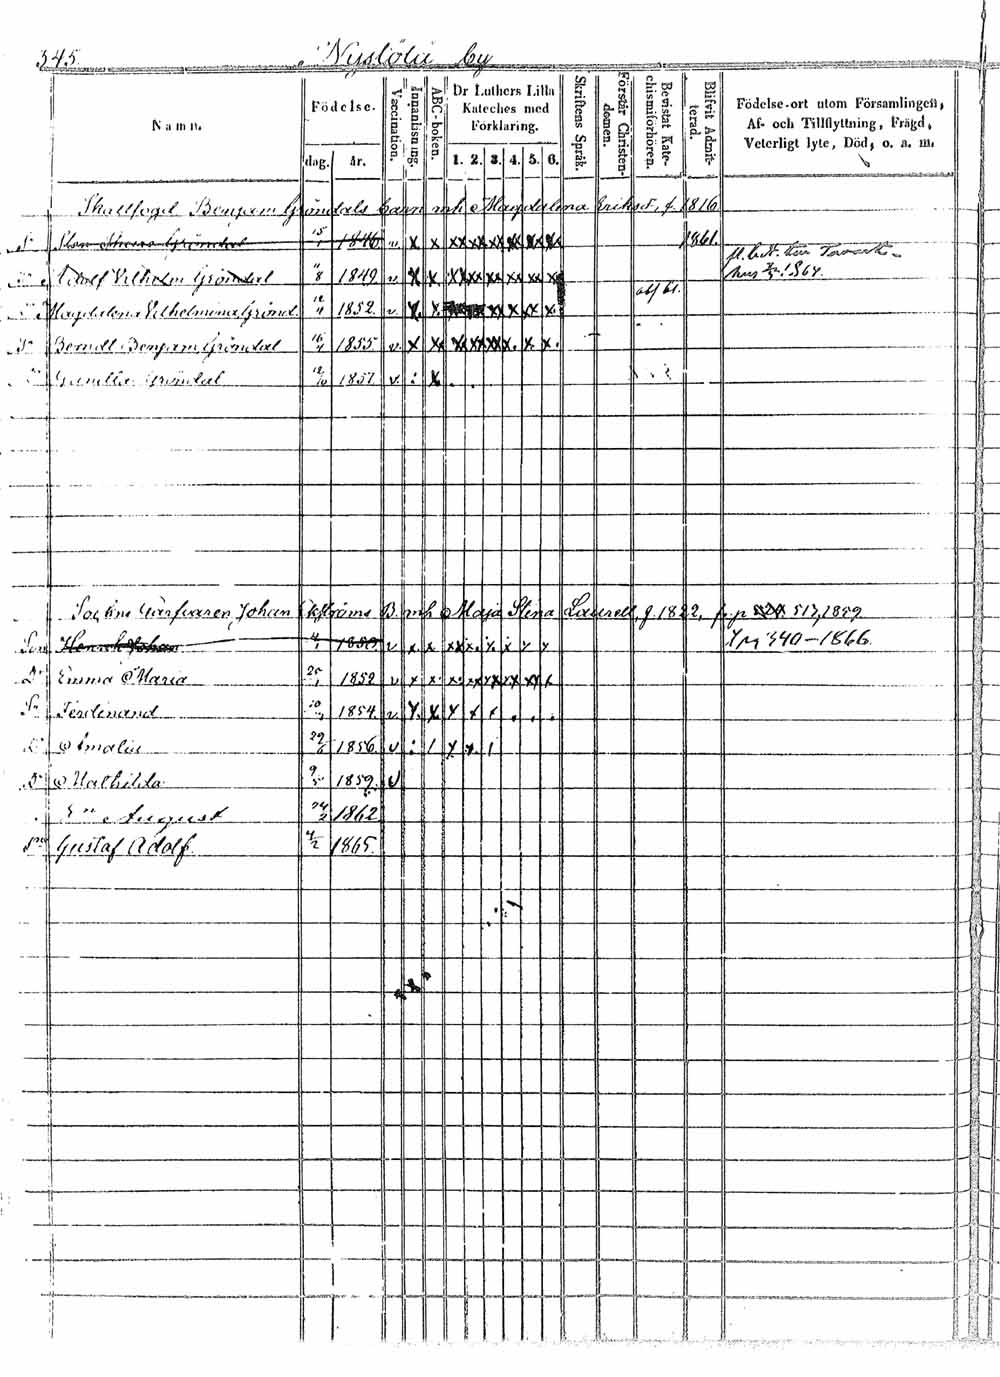 345. Nystölä by
Namn.
Födelse.
dag. år.
Vaccination.
Innanläsning.
ABC-boken.
Dr Luthers Lilla
Kateches med
Förklaring.
1. 2. 3. 4. 5. 6.
Skriftens Språk.
Förstår Christen-
domen.
Bevistat Kate-
chismiförhören.
Blifvit Admit-
terad.
Födelse-ort utom Församlingen,
Af- och Tillflyttning, Frägd,
Veterligt lyte, Död, o. a. m.
Skallfogd Benjam Gröndals barn mh Magdalena Eriksd, f. 1816
Gröndal 15/1 1846 v. x x xx xx xx xx xx xx 1861.
Adolf Vilhelm Gröndal 11/8 1849 v x x
1864.
Magdalena Vilhelmina Grönd. 12/11 1852. v x. x.
Berndt Benjam Gröndal 16/7 1855 v. x xx
Gunilla Gröndal 12/10 1857 v. : x . .
Sockne Garfvaren Johan Ekströms B. mh Maja Stina Laurell, f. 1822, fr p 517, 1859
Son Henrik Johan 4/1 1850 v x x
340-1866.
Dr Emma Maria 25/1 1852 v x x.
Sn Ferdinand 1854. v. x. x x x x . . .
Dr Amalia 29/6 1856. v : / x x. /
Dr Mathilda 9/5 1859. v
Sn August 24/2 1862
Sn Gustaf Adolf. 4/2 1865.